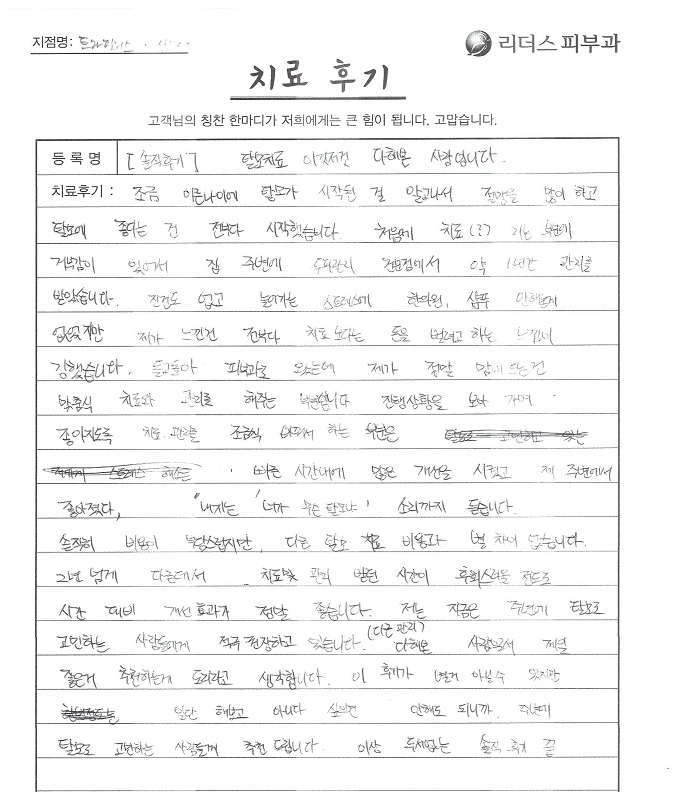 지점명:
리더스 피부과
치료 후기
고객님의 칭찬 한마디가 저희에게는 큰 힘이 됩니다. 고맙습니다.
등 록 명 [솔직후기] 탈모치료 이것저것 다해본 사람입니다.
치료후기 : 조금 이른나이에 탈모가 시작된 걸 알고나서 절망을 많이 하고
탈모에 좋다는 건 전부다 시작했습니다. 처음에 치료(?) 라는 부분에
거부감이 있어서 집 주변에 두피관리 전문점에서 약 1년간 관리를
받았습니다. 진전도 없고 늘어가는 스트레스에 한의원, 샴푸 안해본게
없었지만 제가 느낀건 전부다 치료 보다는 돈을 벌려고 하는 느낌이
강했습니다. 돌고돌아 피부과로 왔는데 제가 정말 맘에 드는건
맞춤식 치료와 관리를 해주는 부분입니다 진행상황을 보아 가며
좋아지도록 치료.관리를 조금씩 바꿔서 하는 부분은 탈모로 고민하고 있는
스트레스 해소는 . 빠른 시간내에 많은 개선을 시켰고 제 주변에서
좋아졌다, "내지는 '너가 무슨 탈모냐' 소리까지 듣습니다.
솔직히 비용이 부담스럽지만, 다른 탈모 치료 비용과 별 차이 없습니다.
2년 넘게 다른데서 치료및 관리 받던 시간이 후회스러울 정도로
시간 대비 개선 효과가 정말 좋습니다. 저는 지금은 주변에 탈모로
고민하는 사람들에게 적극 권장하고 있습니다. (다른 관리) 다해본 사람으로서 제일
좋은거 추천하는게 도리라고 생각합니다. 이 후기가 별거 아닐수 있지만
일단 해보고 아니다 싶으면 안해도 되니까. 주변에
탈모로 고민하는 사람들께 추천 드립니다. 이상 두서없는 솔직 후기 끝